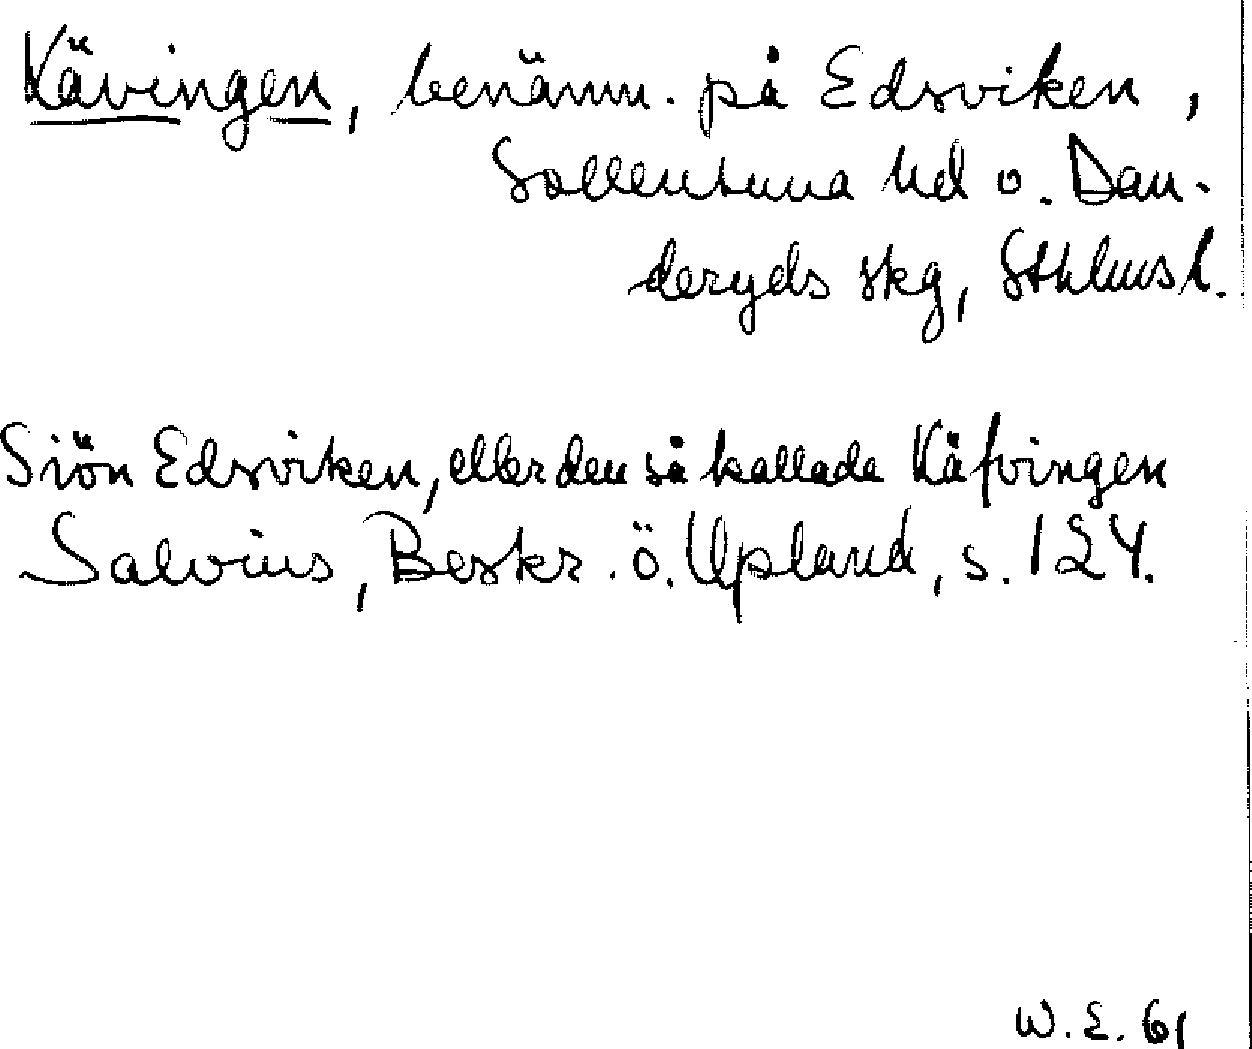 Kävingen, benämn. på Edsviken,
Sollentuna hd o. Dan-
deryds skg, Sthlms l.
Siön Edsviken, eller den så kallade Käfvingen
Salvius, Beskr. ö. Upland, s. 124.
W.E. 61